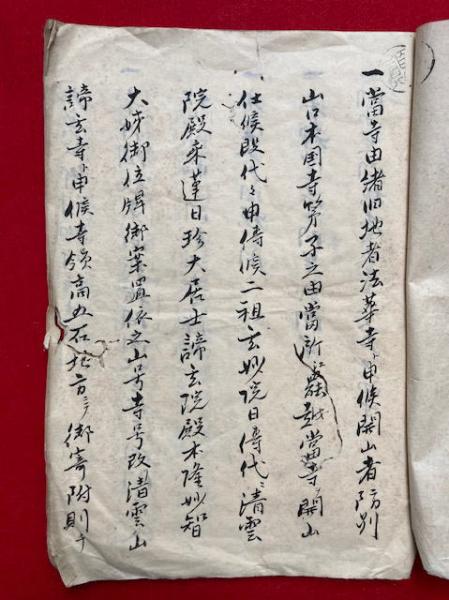 一當寺由緒旧地者法華寺ト申候開山者防州
山口本国寺弟子之由當所ニ罷越當寺開山
仕候段代々申傳候二祖玄妙院日傳代ニ清雲
院殿来蓮日珍大居士諦玄院殿本隆妙智
大姉御位牌御案置依之山号寺号改清雲山
諦玄寺ト申候寺領高五石地方ニ而御寄附則